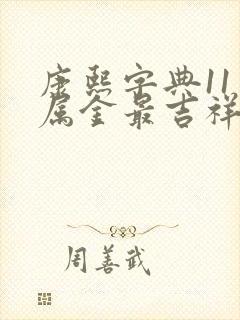 康熙字典11
属金最吉祥
周善武